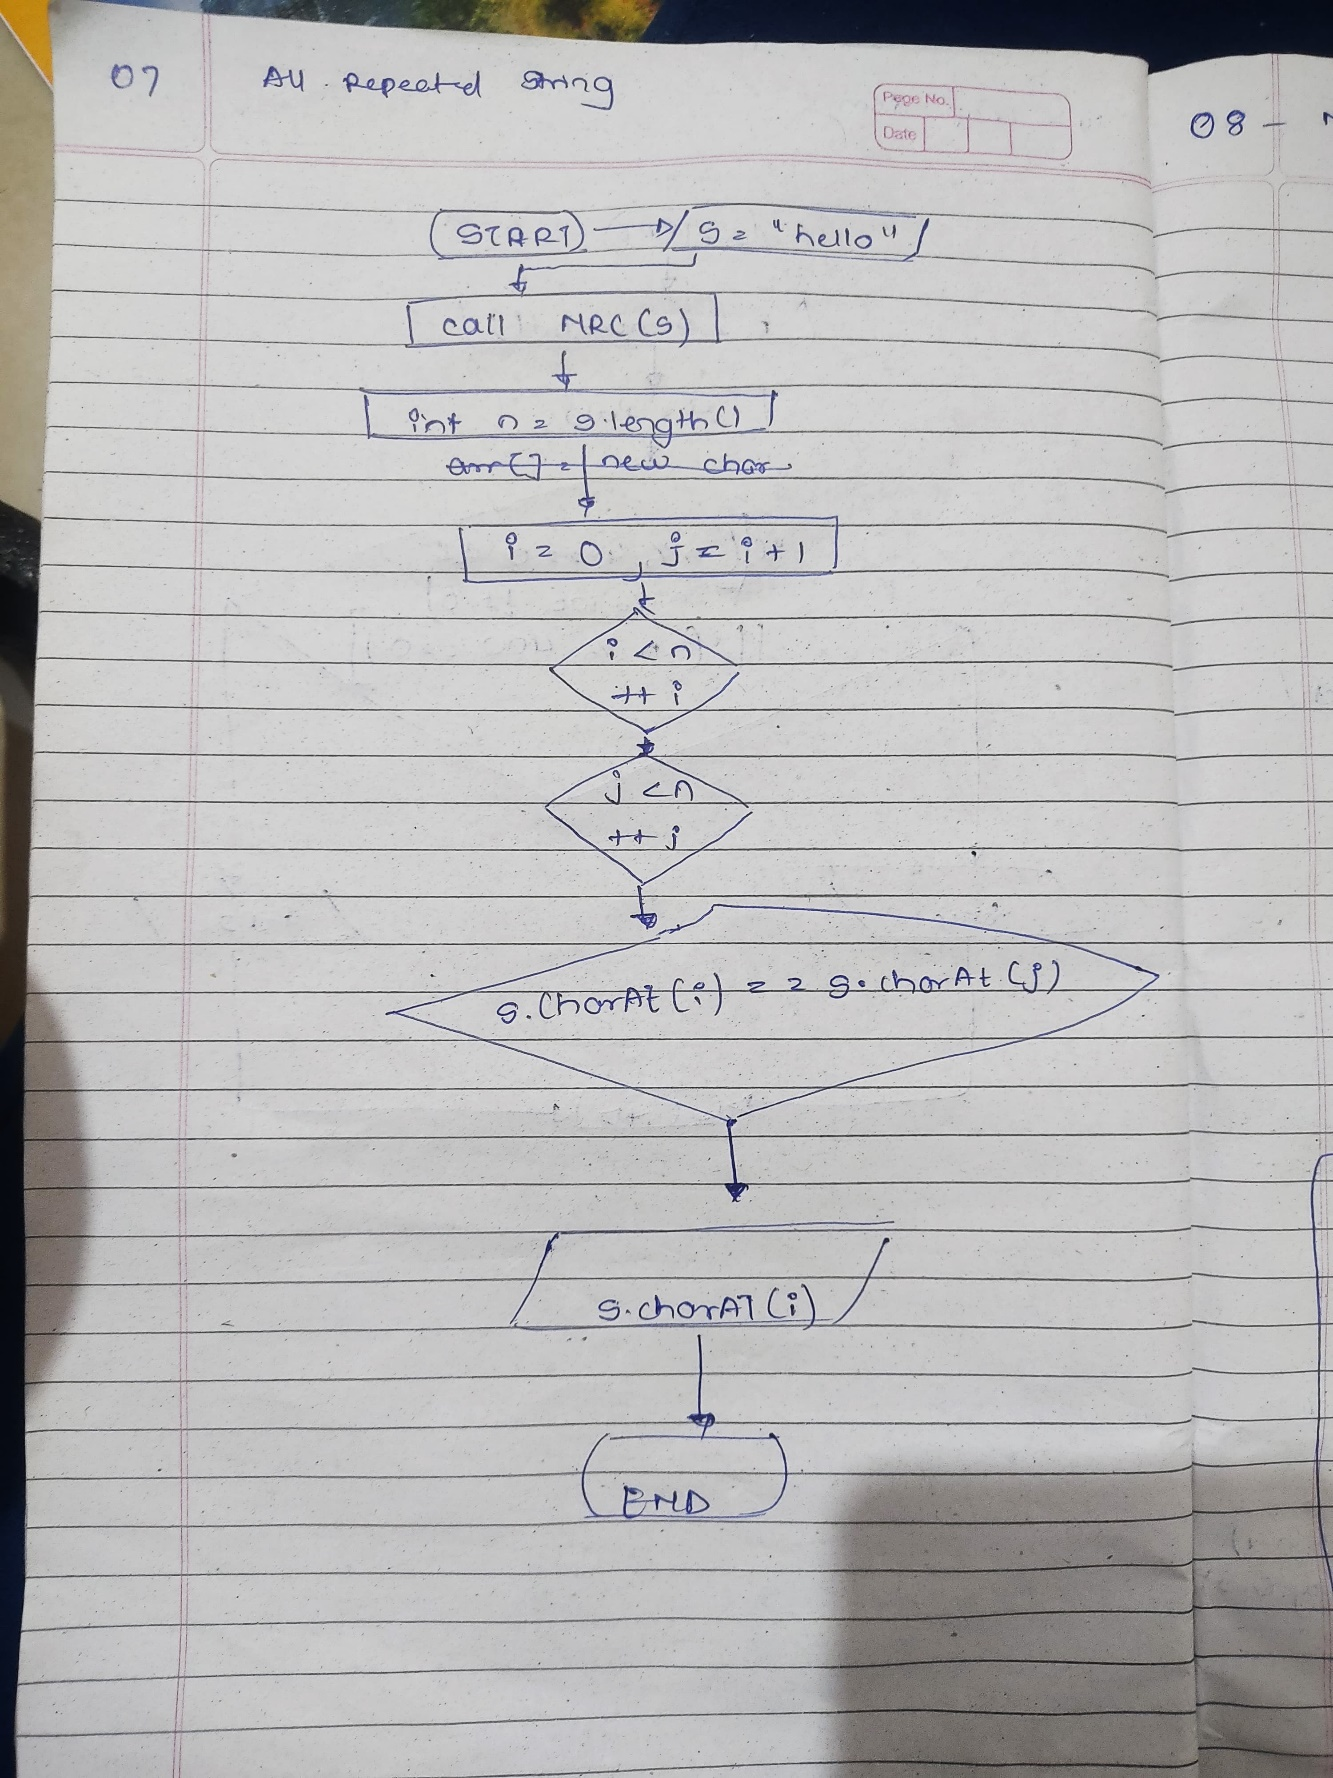 07 All Repeated String
Page No.
Date
08 -
START
S = "hello"
call NRC(S)
int n = s.length()
arr[] = new char
i = 0, j = i+1
i < n
++ i
j < n
++ j
s.charAt(i) == s.charAt(j)
s.charAT(i)
END